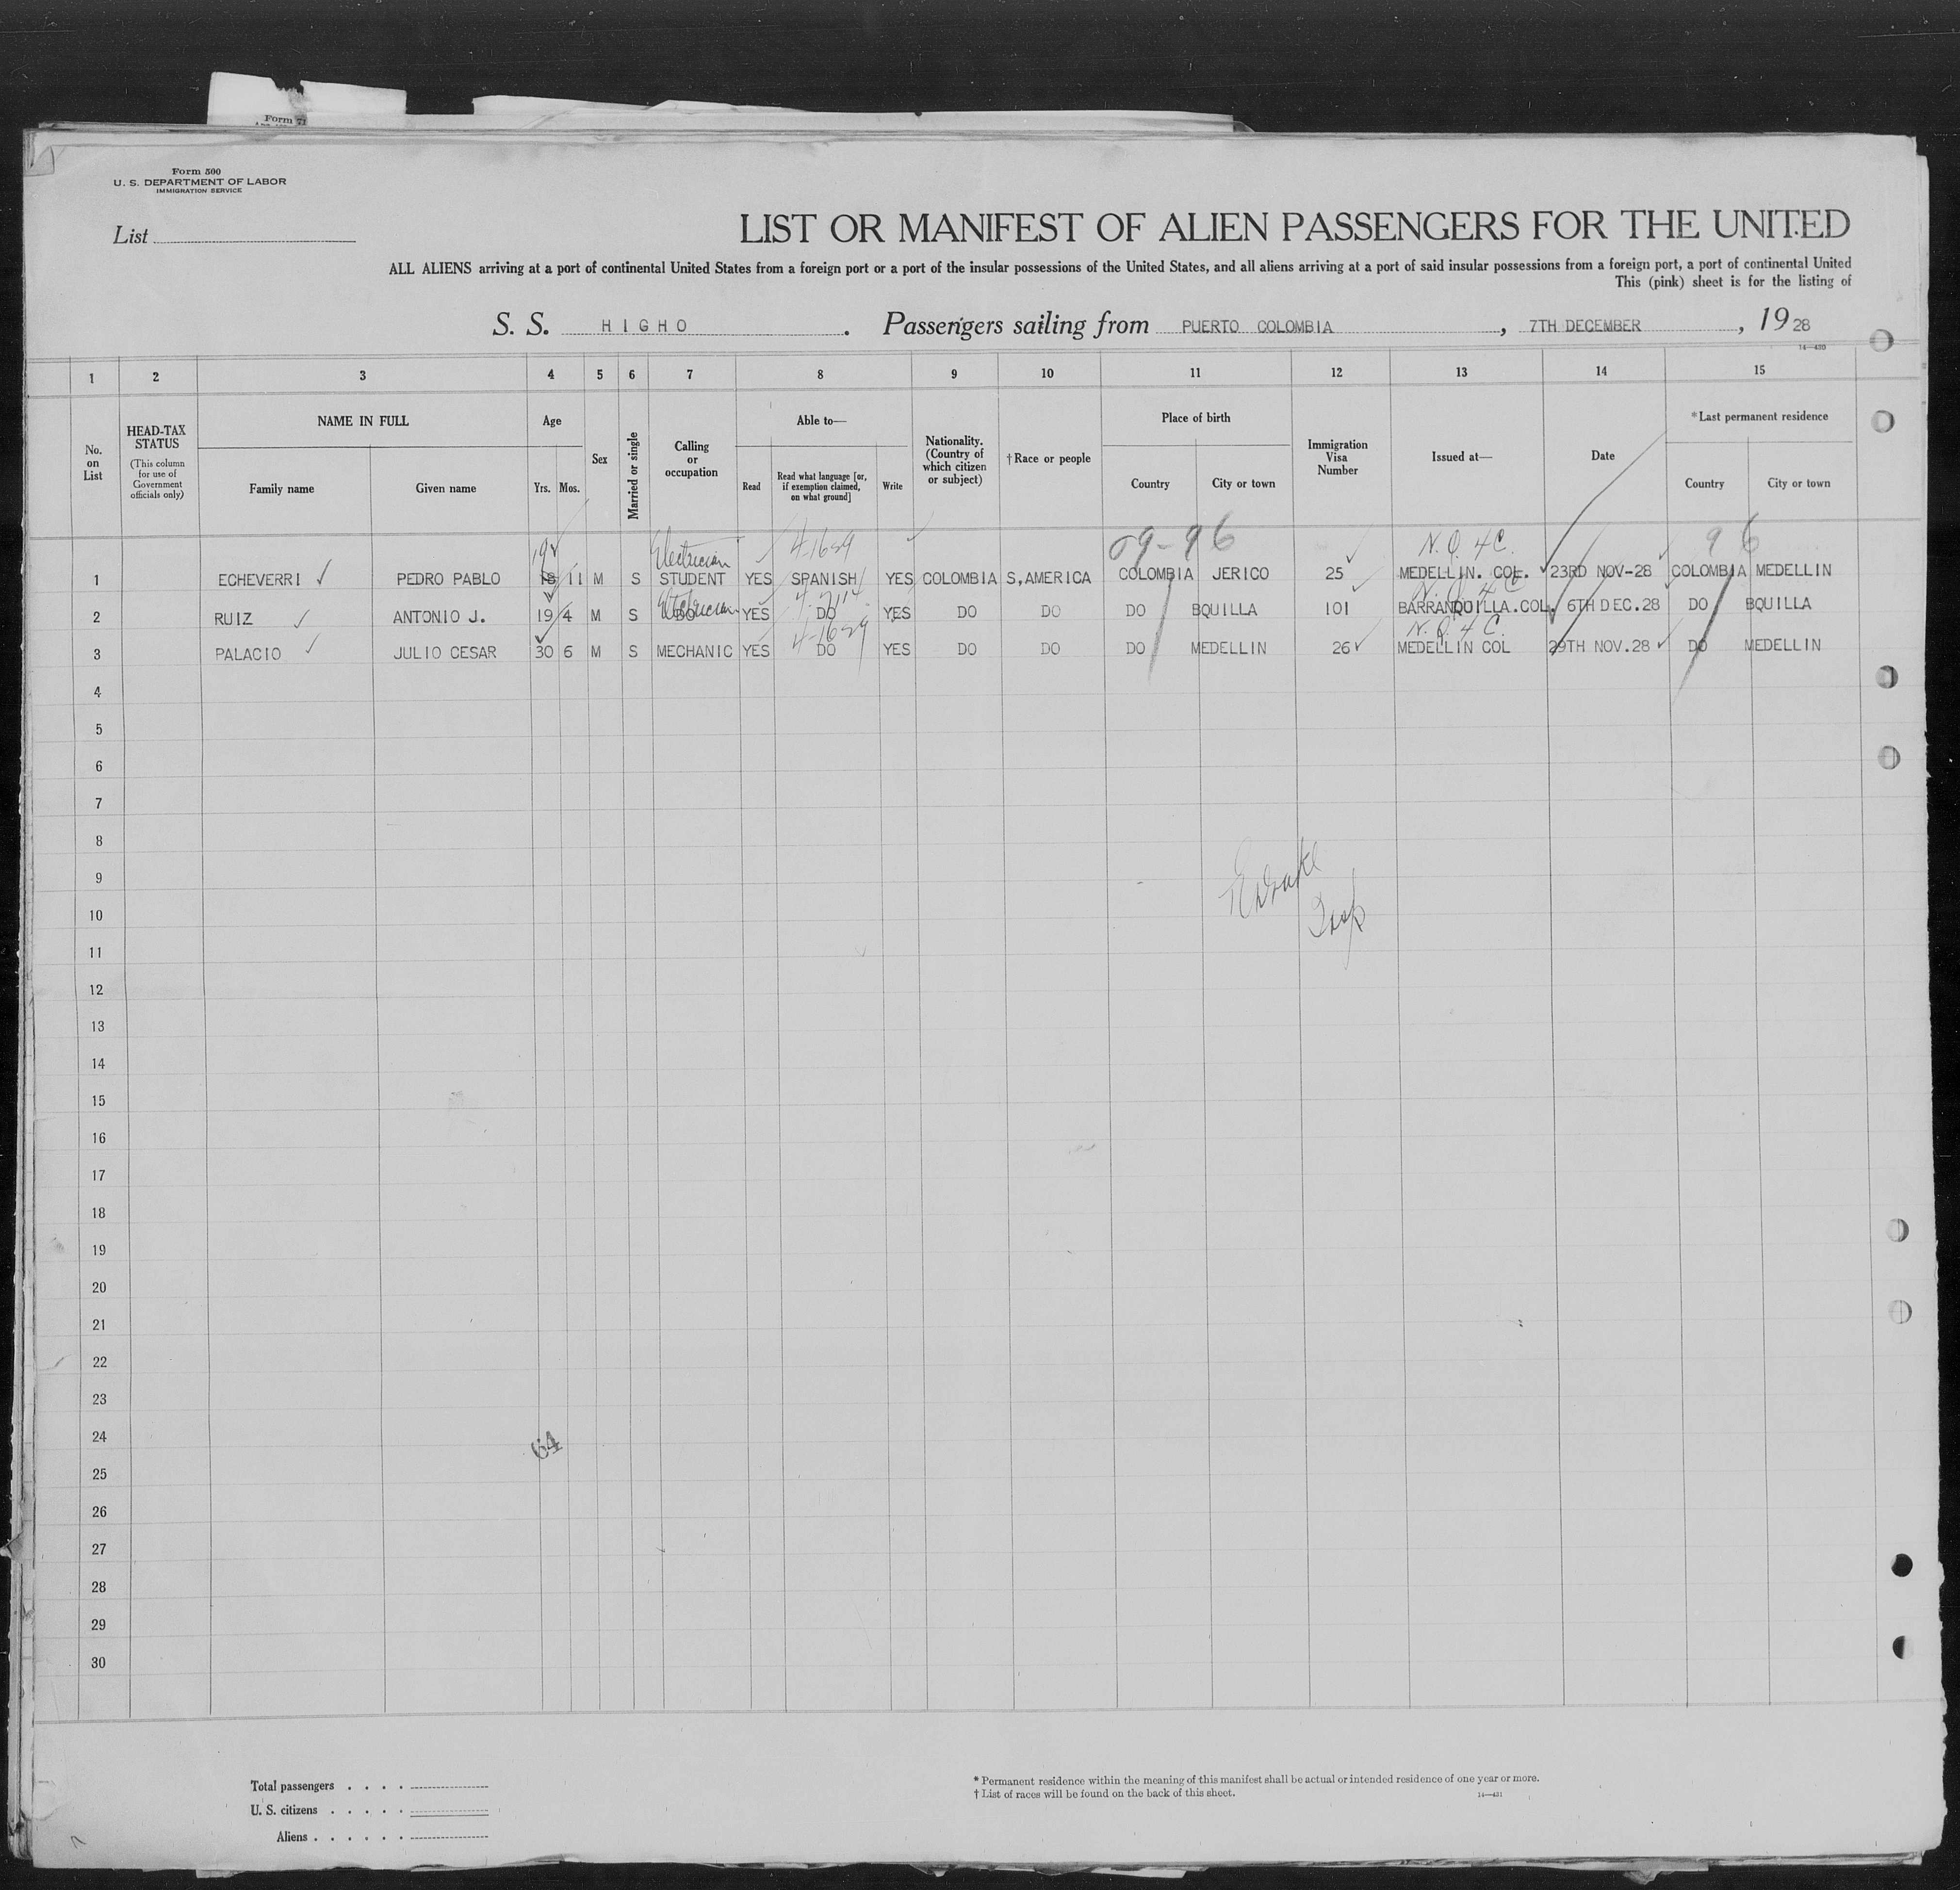 Form 71
Form 500
U. S. DEPARTMENT OF LABOR
IMMIGRATION SERVICE
List
LIST OR MANIFEST OF ALIEN PASSENGERS FOR THE UNITED
ALL ALIENS arriving at a port of continental United States from a foreign port or a port of the insular possessions of the United States, and all aliens arriving at a port of said insular possessions from a foreign port, a port of continental United
This (pink) sheet is for the listing of
S. S. HIGHO. Passengers sailing from PUERTO COLOMBIA, 7TH DECEMBER, 1928
14—430
1 2 3 4 5 6 7 8 9 10 11 12 13 14 15
No. on List
HEAD-TAX STATUS
(This column for use of Government officials only)
NAME IN FULL
Family name
Given name
Age
Yrs. Mos.
Sex
Married or single
Calling or occupation
Able to—
Read
Read what language [or, if exemption claimed, on what ground]
Write
Nationality. (Country of which citizen or subject)
†Race or people
Place of birth
Country
City or town
Immigration Visa Number
Issued at—
Date
*Last permanent residence
Country
City or town
19 Electrician 4-1689 09-96 N.Q.4C. 96
1 ECHEVERRI PEDRO PABLO 18 11 M S STUDENT YES SPANISH YES COLOMBIA S,AMERICA COLOMBIA JERICO 25 MEDELLIN. COL. 23RD NOV-28 COLOMBIA MEDELLIN
Electrician N.Q.4C
2 RUIZ ANTONIO J. 19 4 M S DO YES DO YES DO DO DO BQUILLA 101 BARRANQUILLA.COL. 6TH DEC.28 DO BQUILLA
4-1689 N.Q.4C.
3 PALACIO JULIO CESAR 30 6 M S MECHANIC YES DO YES DO DO DO MEDELLIN 26 MEDELLIN COL 29TH NOV.28 DO MEDELLIN
4
5
6
7
8
9
10
Insp
11
12
13
14
15
16
17
18
19
20
21
22
23
24
64
25
26
27
28
29
30
Total passengers . . . .
U. S. citizens . . . . .
Aliens . . . . . .
* Permanent residence within the meaning of this manifest shall be actual or intended residence of one year or more.
† List of races will be found on the back of this sheet.
14—431